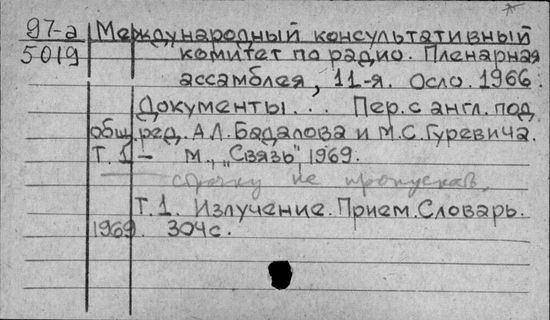 97-а Международный консультативный
5019 комитет по радио. Пленарная
ассамблея, 11-я. Осло. 1966.
Документы... Пер. с англ. под
общ. ред. А.Л. Бадалова и М.С. Гуревича.
Т. 1 – М., "Связь", 1969.
строчку не пропускать
Т.1. Излучение. Прием. Словарь.
1969. 304с.